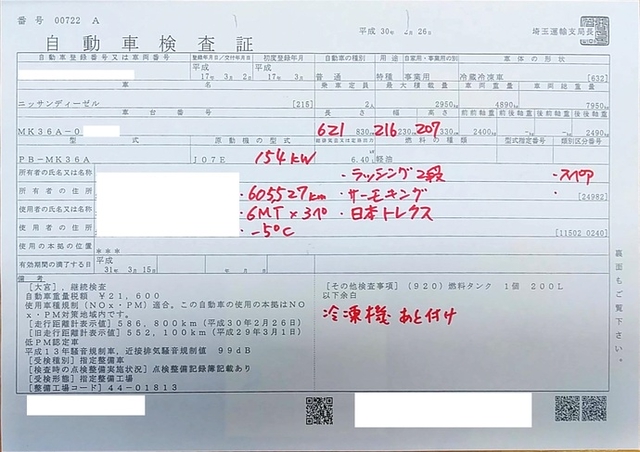 番号 00722 A
平成 30年 2月 26日
埼玉運輸支局長
自動車検査証
自動車登録番号又は車両番号 登録年月日/交付年月日 初度登録年月 自動車の種別 用途 自家用・事業用の別 車体の形状
平成 17年 3月 2日 平成 17年 3月 普通 特種 事業用 冷蔵冷凍車 [632]
車名 乗車定員 最大積載量 車両重量 車両総重量
ニッサンディーゼル [215] 2人 2950kg 4890kg 7950kg
車台番号 長さ 幅 高さ 前前軸重 前後軸重 後前軸重 後後軸重
621 216 207
MK36A-0 830cm 230cm 330cm 2400kg -kg -kg 2490kg
型式 原動機の型式 総排気量又は定格出力 燃料の種類 型式指定番号 類別区分番号
PB-MK36A J07E 154kW 6.40L 軽油
所有者の氏名又は名称 ・ラッシング2段
所有者の住所 ・605,527km ・サーモキング [24982]
使用者の氏名又は名称 ・6MT×370 ・日本トレクス
使用者の住所 ・-5℃ [11502 0240]
使用の本拠の位置 ***
有効期間の満了する日 平成 31年 3月 15日
裏面もご覧下さい
備考
[大宮],継続検査
自動車重量税額 ¥21,600
使用車種規制(NOx・PM)適合。この自動車の使用の本拠はNO
x・PM対策地域内です。
[走行距離計表示値] 586,800km(平成30年2月26日)
[旧走行距離計表示値] 552,100km(平成29年3月1日)
低PM認定車
平成13年騒音規制車,近接排気騒音規制値 99dB
[受検種別] 指定整備車
[検査時の点検整備実施状況] 点検整備記録簿記載あり
[受検形態] 指定整備工場
[整備工場コード] 44-01813
[その他検査事項] (920) 燃料タンク 1個 200L
以下余白
冷凍機 あと付け